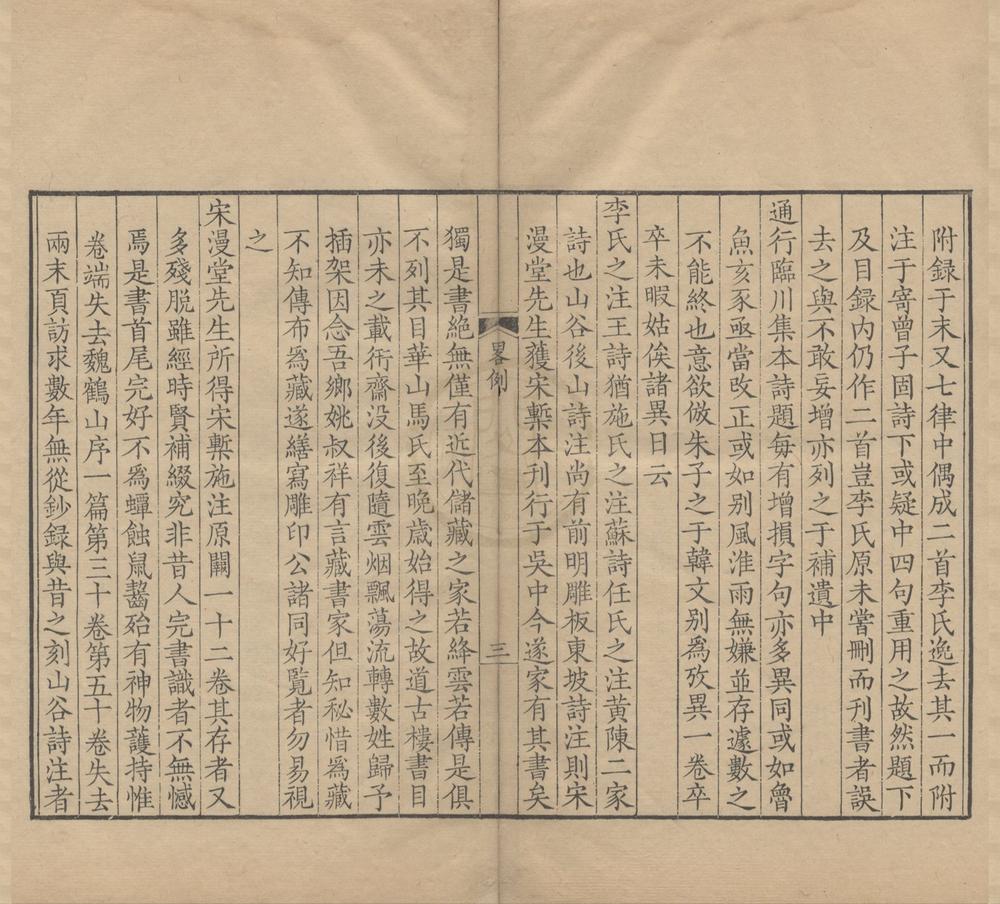 附録于末又七律中偶成二首李氏逸去其一而附
注于寄曾子固詩下或疑中四句重用之故然題下
及目録内仍作二首豈李氏原未嘗刪而刊書者誤
去之與不敢妄增亦列之于補遺中
通行臨川集本詩題每有增損字句亦多異同或如魯
魚亥豕亟當改正或如别風淮雨無嫌並存遽數之
不能終也意欲倣朱子之于韓文别爲攷異一卷卒
卒未暇姑俟諸異日云
李氏之注王詩猶施氏之注蘇詩任氏之注黄陳二家
詩也山谷後山詩注尚有前明雕板東坡詩注則宋
漫堂先生獲宋槧本刊行于吳中今遂家有其書矣
畧例
三
獨是書絶無僅有近代儲藏之家若絳雲若傳是俱
不列其目華山馬氏至晚歲始得之故道古樓書目
亦未之載衎齋没後復隨雲烟飄蕩流轉數姓歸予
插架因念吾鄉姚叔祥有言藏書家但知秘惜爲藏
不知傳布爲藏遂繕寫雕印公諸同好覽者勿易視
之
宋漫堂先生所得宋槧施注原闕一十二卷其存者又
多殘脱雖經時賢補綴究非昔人完書識者不無憾
焉是書首尾完好不爲蟫蝕鼠齧殆有神物護持惟
卷端失去魏鶴山序一篇第三十卷第五十卷失去
兩末頁訪求數年無從鈔録與昔之刻山谷詩注者